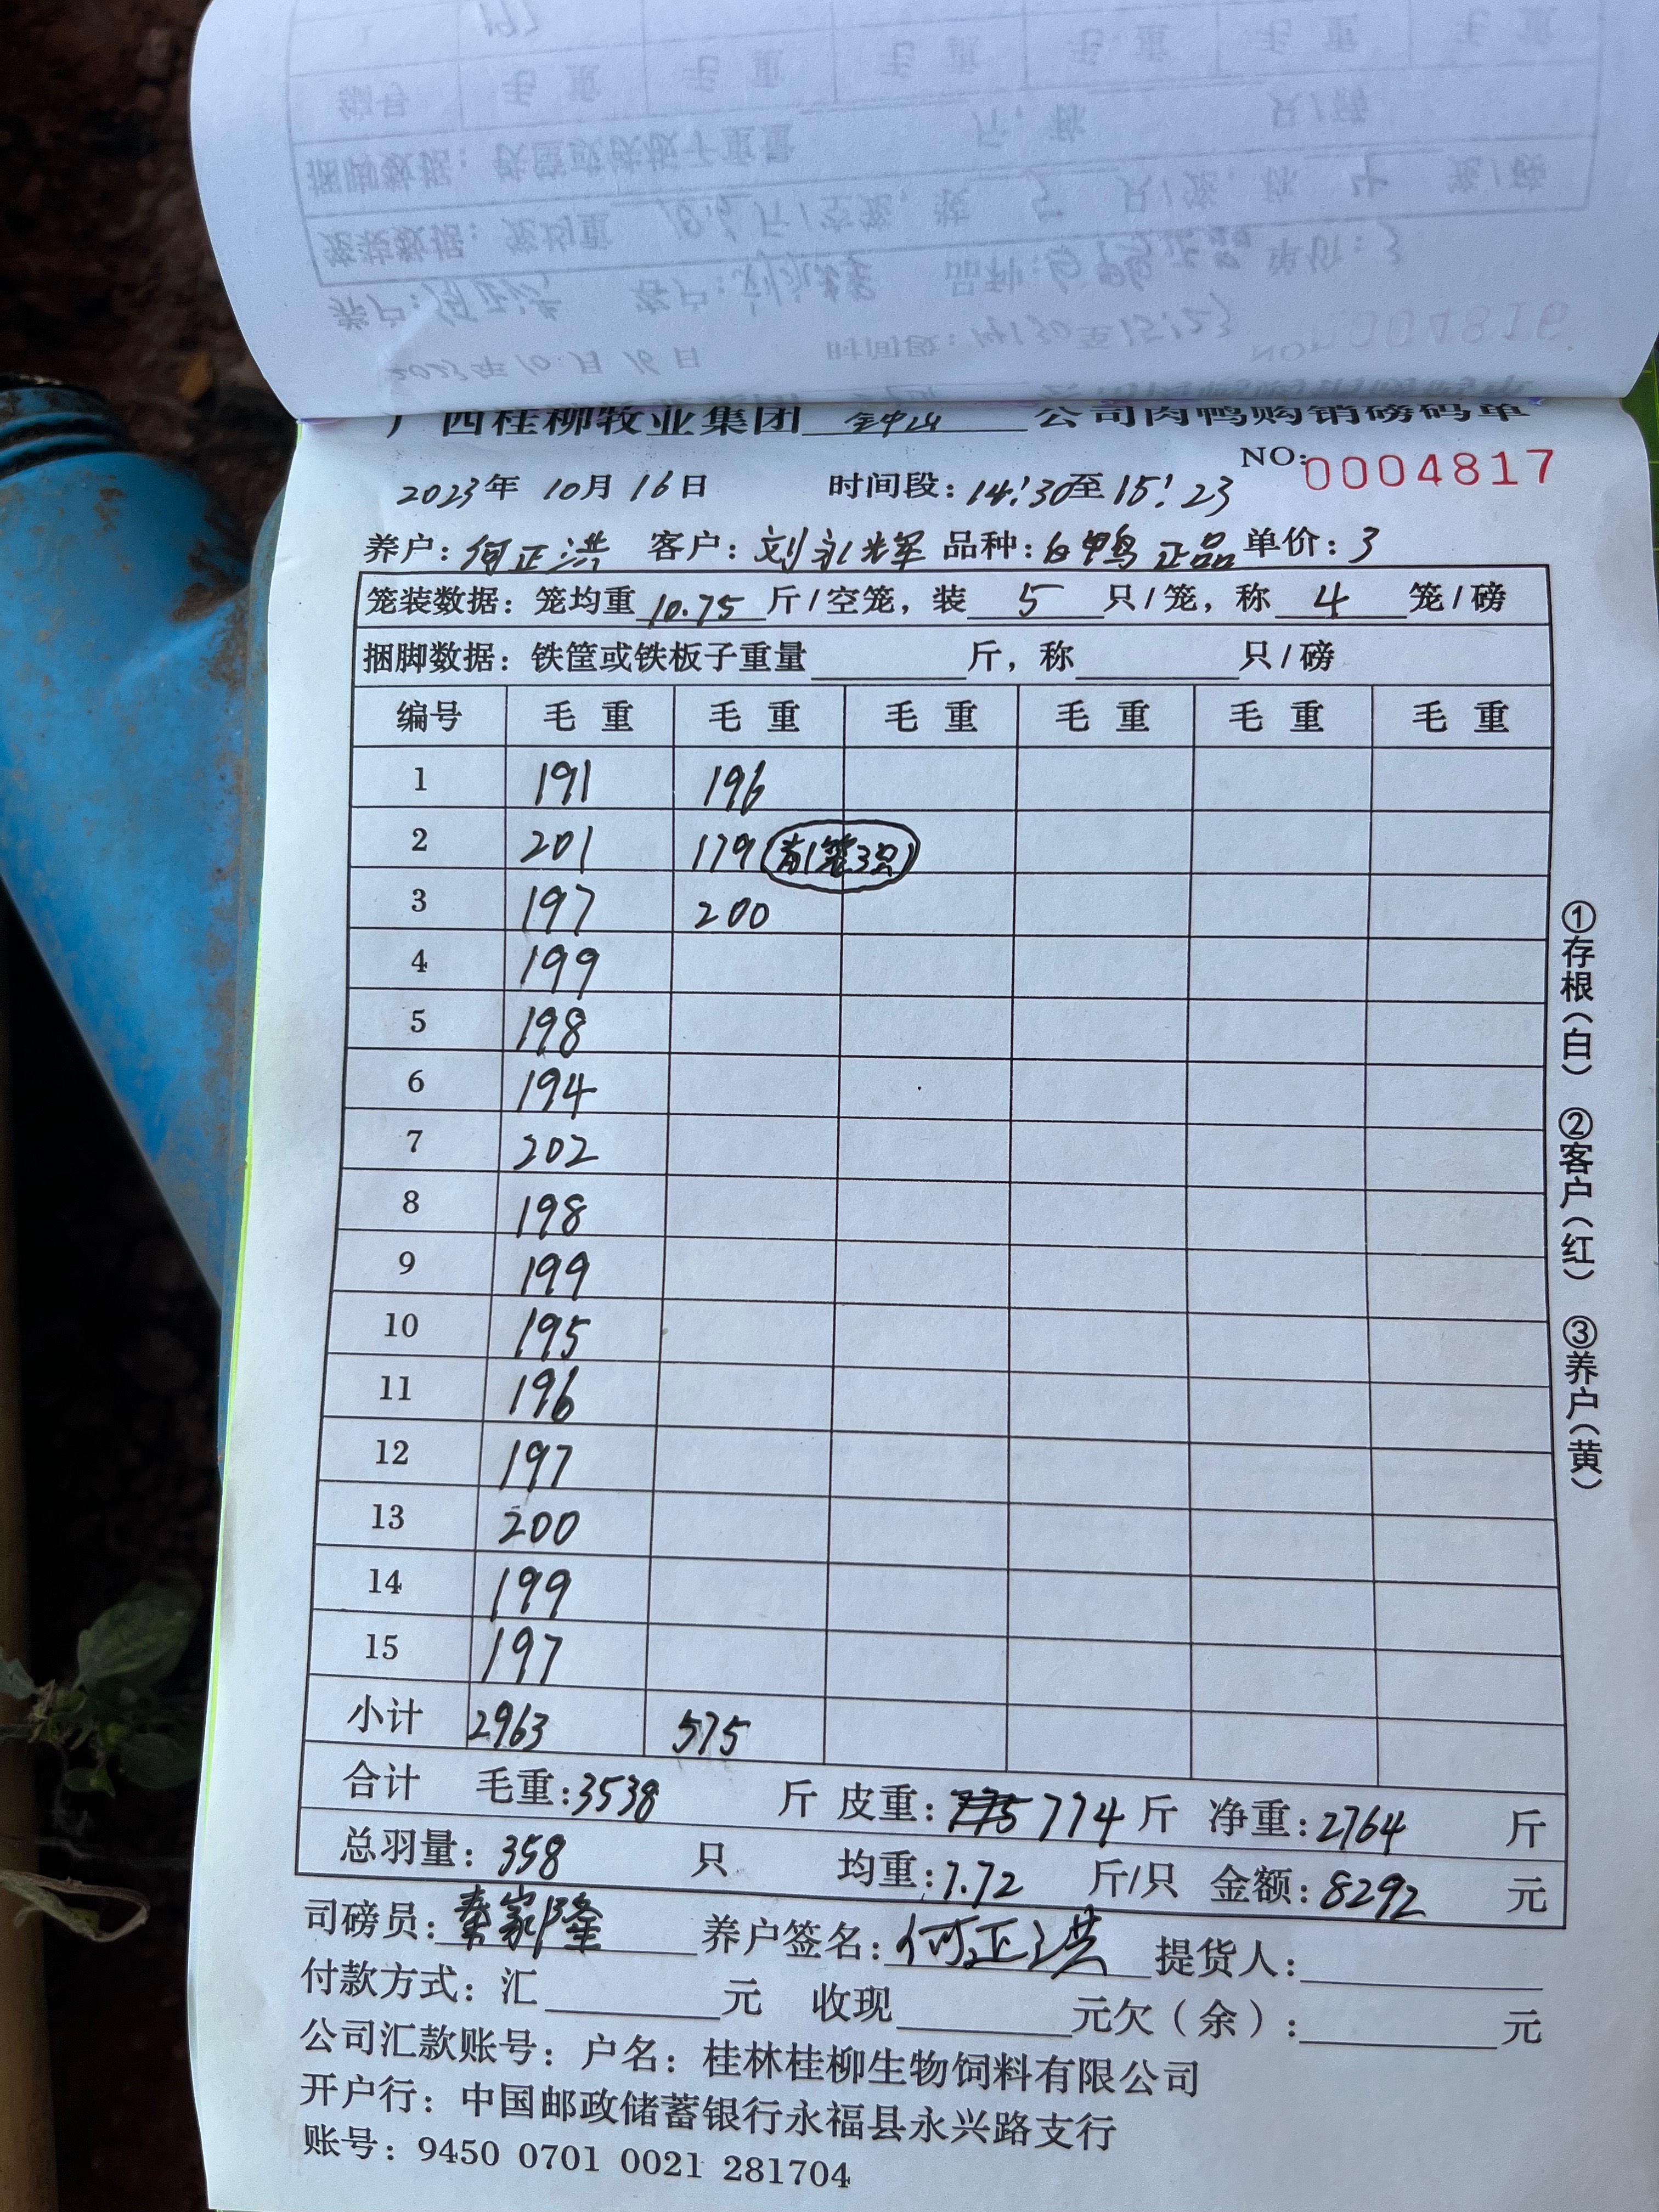 广西桂柳牧业集团 钟山 公司肉鸭购销磅码单
NO:0004817
2023年 10月 16日 时间段:14:30至15:23
养户:何正洪 客户:刘永辉 品种:白鸭正品 单价:3
笼装数据:笼均重 10.75 斤/空笼,装 5 只/笼,称 4 笼/磅
捆脚数据:铁筐或铁板子重量 斤,称 只/磅
编号 毛重 毛重 毛重 毛重 毛重 毛重
1 191 196
2 201 179(有1笼3只)
3 197 200
4 199
5 198
6 194
7 202
8 198
9 199
10 195
11 196
12 197
13 200
14 199
15 197
小计 2963 575
合计 毛重:3538 斤 皮重:775 774斤 净重:2764 斤
总羽量:358 只 均重:7.72 斤/只 金额:8292 元
司磅员:秦家隆 养户签名:何正洪 提货人:
付款方式:汇 元 收现 元欠(余): 元
公司汇款账号:户名:桂林桂柳生物饲料有限公司
开户行:中国邮政储蓄银行永福县永兴路支行
账号:9450 0701 0021 281704
①存根(白) ②客户(红) ③养户(黄)